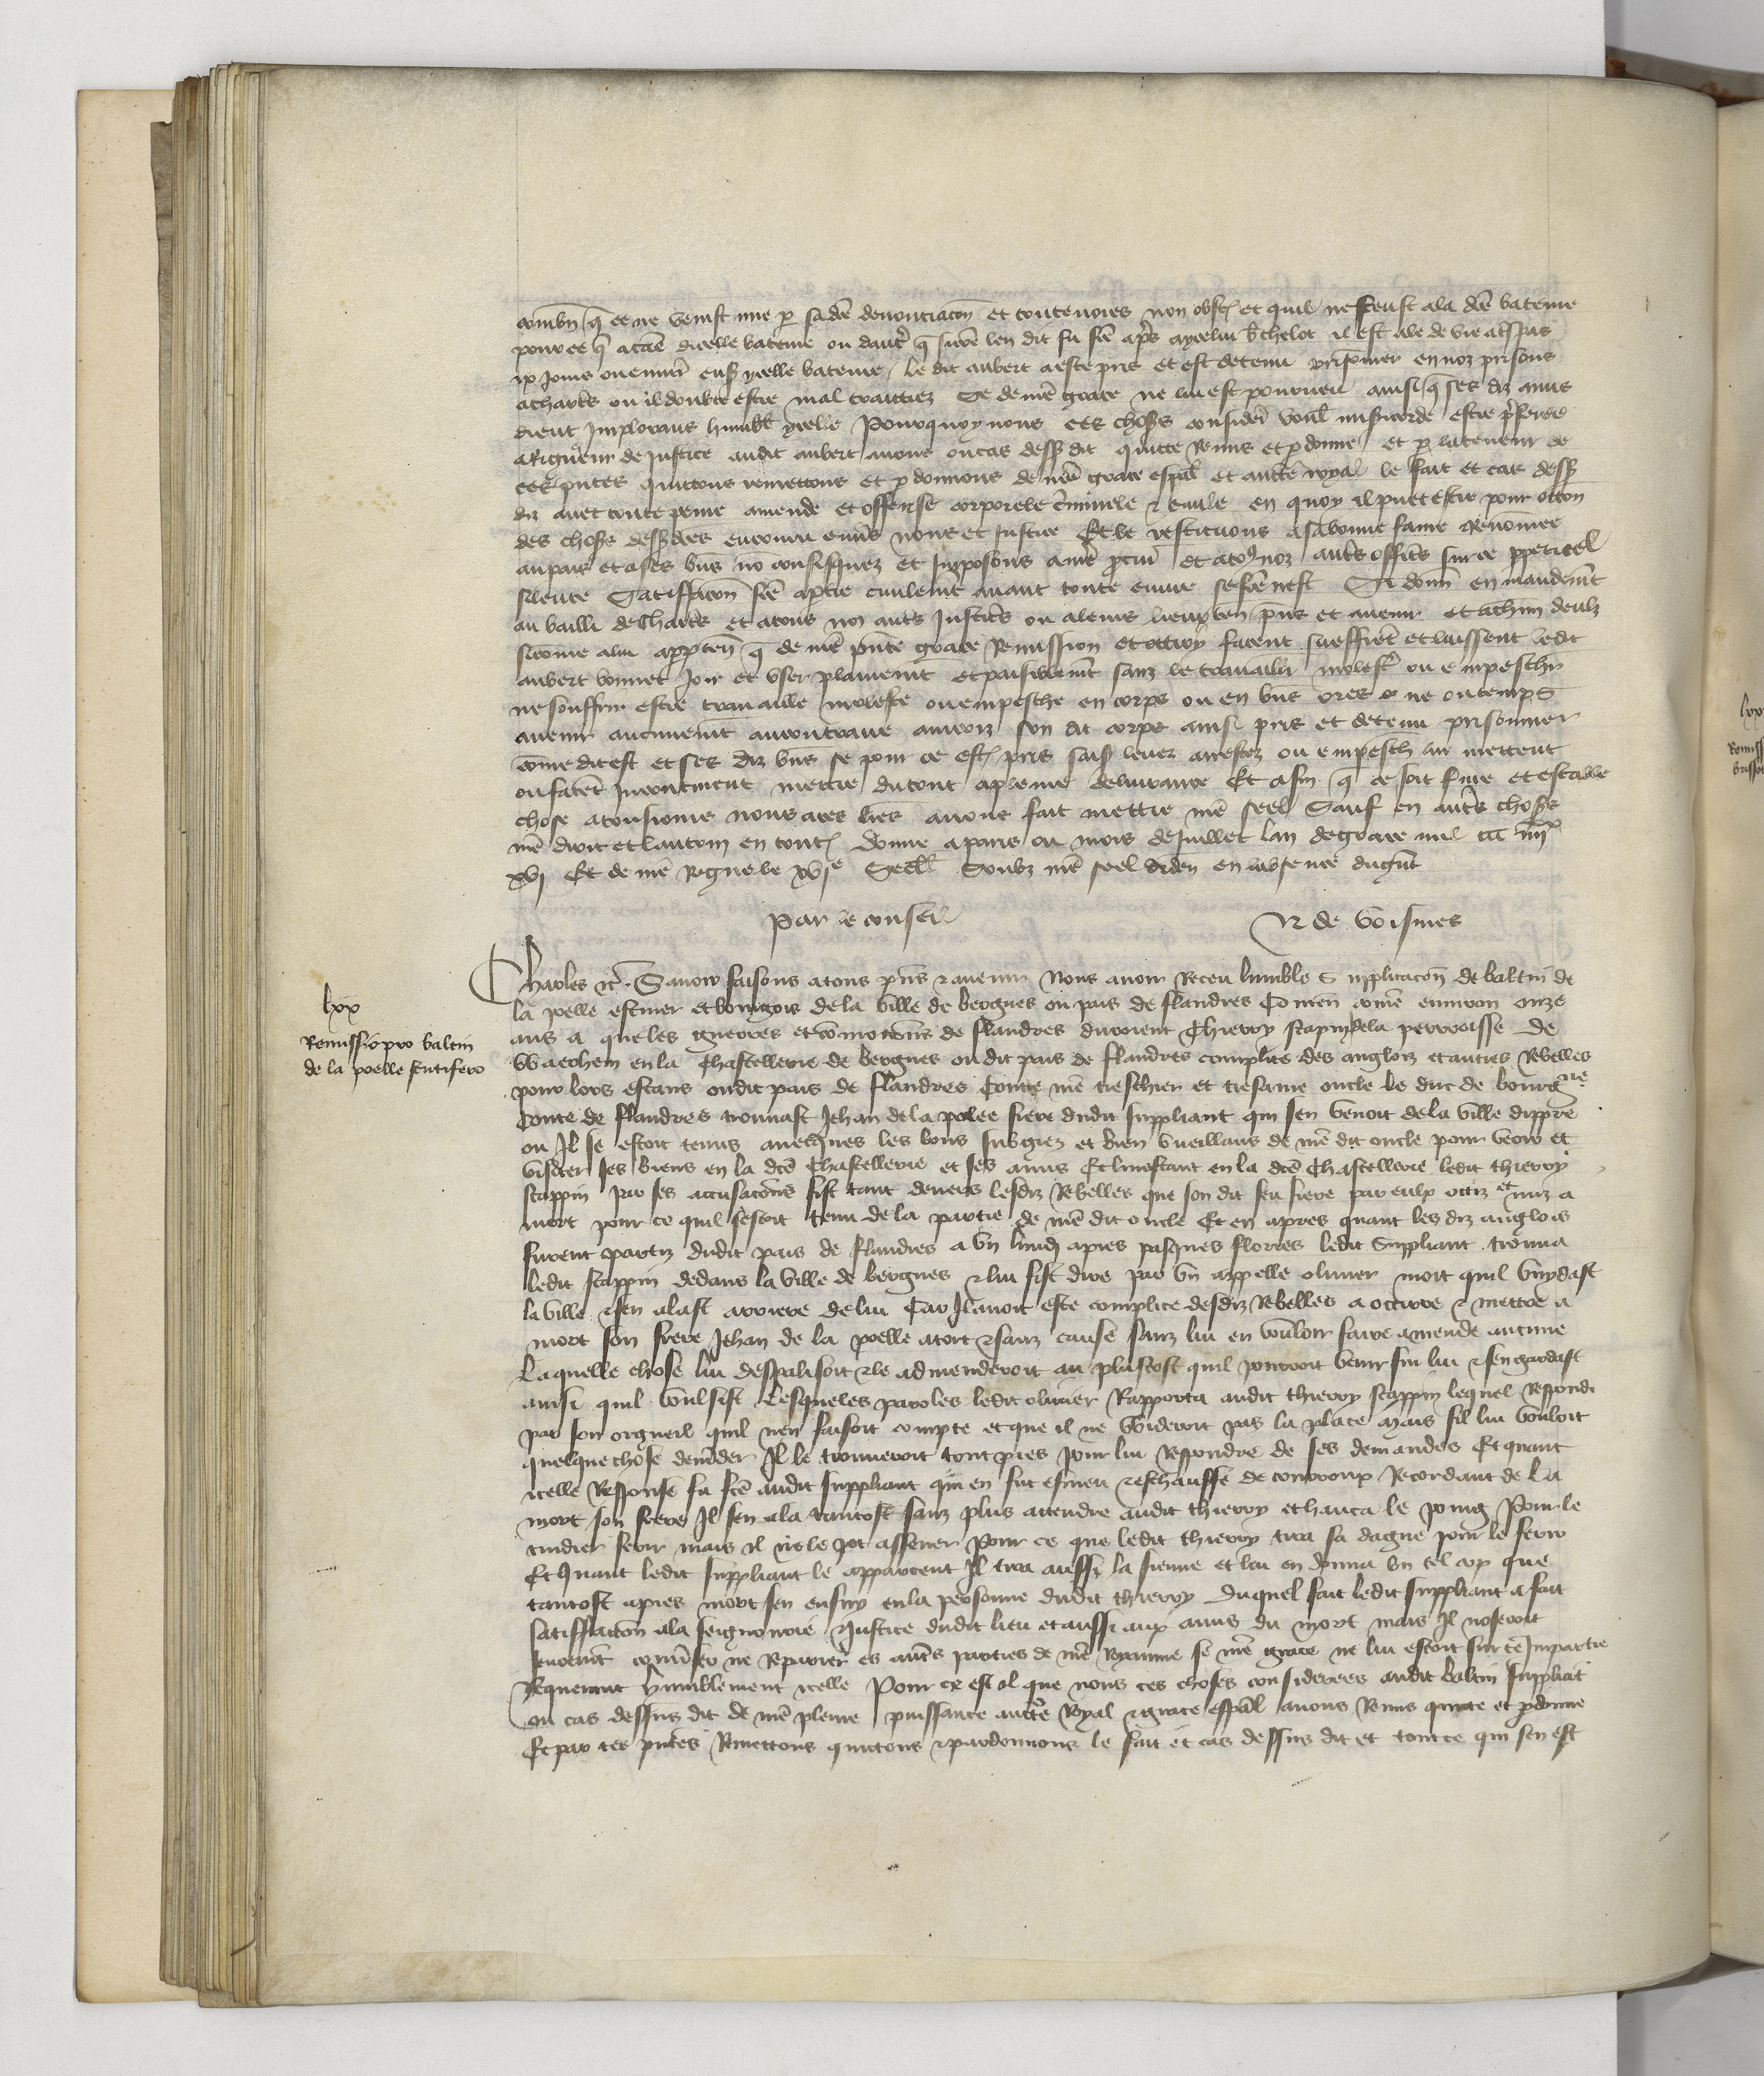 combn̄ q̄ ce ne venist mie p̱ sa dc̄e denonciacōn et contenoies non obst̄ et quil ne feust a la dc̄e bateure
pource q̄ atcāe dicelle bateure ou dautr̄ q̄ sur ce len dit fu fc̄e apr̄s aycelui Bichelot il est ale de vie a trespas
ix jours ou environ ens ycelle bateure / le dit aubert a este pris et est detenu prisonnier en noz prisons
a chartr̄s ou il doubte estre mal traittiez Se de nr̄e grace ne lui est pourveu ainsi q̄ ses diz amis
dient Implorans humbl̄ ycelle Pourquoy nous ces choses consider̄ voul̄ misericorde estre p̄feree
a Rigueur de Justice audit aubert avons ou cas dess̄ dit quitte Remis et p̱donne et p̱ la teneur de
ces p̄ntes quittons remettons et p̱donnons de nr̄e grace esp̄al et auctē royal le fait et cas dess̄
diz avec toute peine amende et offense corporele c̄minele & civile en quoy il puet estre pour occōn
des choses dess̄dites encouru envs̄ nous et Justice Et le restituons a sa bonne fame Renōmee
au pais et a ses bn̄s nō confisquez et Imposons a nr̄e p̱cur̄ et a to9 noz autr̄s officrs̄ sur ce p̱petuel
silence Satisffacōn fc̄e a p̱tie civilemt̄ avant toute euvre se fc̄e nest Si donn̄ en mandemt̄
au bailli de Chartr̄s et a tous noz autr̄s Justicr̄s ou a leurs lieuxten̄ p̄ns et avenir et a chūn deulz
sicōme a lui app̱ten̄ q̄ de nr̄e p̄nte grace Remission et ottroy facent sueffrēt et laissent ledit
aubert bonnet Joir et user plainemt̄ et paisiblemt̄ sanz le travaillr̄ molestr̄ ou empeschr̄
ne souffrir estre travaille moleste ou empesche en corps ou en bn̄s ores ne ou temps
avenir aucunemt̄ au contraire aincois son dit corps ainsi pris et detenu prisonnier
cōme dit est et ses diz bn̄s se pour ce est̄ pris saisi levez arrestez ou empesch̄ lui mettent
ou facēt Incontinent mettre du tout a pleine delivrance Et afin q̄ ce soit ferme et estable
chose a tousiours nous a ces lr̄es avons fait mettre nr̄e seel Sauf en autr̄s choses
nr̄e droit et lautrui en tout̄ Donne a paris ou mois de Juillet lan de grace mil ccc iiiixx
xvj Et de nr̄e Regne le xvje Seell̄ Soubz nr̄e seel ordēn en labsence du gn̄t
Par le conseil N de Voisines
lxx
Remissio pro Baltin
de la poelle sentifero
Charles &c̄ Savoir faisons a tous p̄ns & avenir Nous avoir Receu humble Supplicacōn de baltin de
la poelle escuier et bourgois de la ville de bergues ou pais de flandres Conten̄ cōme environ onze
ans a que les guerres et cōmocions de flandres duroient Thierry scapin de la perroisse de
Waechem en la Chastellerie de bergues ou dit pais de flandres complice des anglois et autres Rebelles
pour lors estans oudit pais de flandres Contre nr̄e treschier et tresame oncle le duc de bourgne
Conte de flandres trouvast Jehan de la poelee frere dudit suppliant qui sen venoit de la ville dippre
ou Il se estoit tenus avecques les bons subgiez et bien vueillans de nr̄e dit oncle pour veoir et
visiter ses biens en la dcē Chastellerie et ses amis Et lui estant en la dcē Chastellerie ledit thierry
scappin par ses accusacōns fist tant devers lesdiz Rebelles que son dit feu frere par eulx occiz et miz a
mort pour ce quil sestoit tenu de la partie de nr̄e dit oncle Et en apres quant les diz anglois
furent partiz dudit pais de flandres a un lundj apres pasques flories ledit Suppliant trouva
ledit scappin dedans la ville de bergues & lui fist dire par un appelle olivier mort quil vuydast
la ville & sen alast arriere de lui Car Il avoit este complice desdiz Rebelles a occirre & mettre a
mort son frere Jehan de la poelle a tort & sanz cause sanz lui en vouloir faire amende aucune
Laquelle chose lui desplaisoit & le admenderoit au plustost quil pourroit venir sur lui & sen gardast
ainsi quil voulsist Lesqueles paroles ledit olivier Rapporta audit thierry scappin lequel Respondi
par son orgueil quil nen faisoit compte et que il ne Wideroit pas la place mais sil lui vouloit
quelque chose demāder Il le trouveroit tout prest pour lui Respondre de ses demandes Et quant
icelle Response fu fcē audit suppliant qui en fut esmeu & eschauffe de courroux Recordant de la
mort son frere Il sen ala tantost sanz plus attendre audit thierry et hauca le poing Pour le
cuidier ferir mais il ne le pot assener Pour ce que ledit thierry tira sa dague pour le ferir
Et quant ledit suppliant le apparceut Il tira aussi la sienne et lui en donna un tel cop que
tantost apres mort sen ensuy en la personne dudit thierry Duquel fait ledit suppliant a fait
satisffaccōn a la seignourie & Justice dudit lieu et aussi aux amis du mort mais Il noseroit
seuremt̄ conuerser ne Reparier es autrs̄ parties de nr̄e Royaume se nr̄e grace ne lui estoit sur ce Impartie
Requerant humblement icelle Pour ce est il que nous ces choses considerees audit Baltin suppliāt
ou cas dessus dit de nr̄e pleine puissance auctē Royal & grace esp̄al avons Remis quitte et p̱donne
Et par ces pn̄tes Remettons quittons & pardonnons le fait et cas dessus dit et tout ce qui sen est